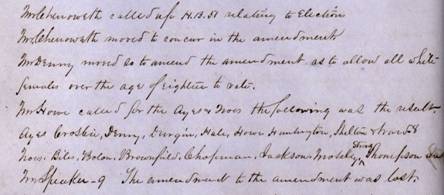 Mr Chenoweth called up H.B. 51 relating to Election
Mr Chenoweth moved to concur in the amendment
Mr Denny moved so to amend the amendment as to allow all white
females over the age of eighteen to vote.
Mr Howe called for the Ayes & Noes the following was the result
Ayes Crosbie, Denny, Durgin, Hale, Howe Huntington, Shelton & Ward 8
Noes: Biles, Bolon, Brownfield, Chapman, Jackson Moseley Thompson
Mr Speaker - 9 The amendment to the amendment was lost.